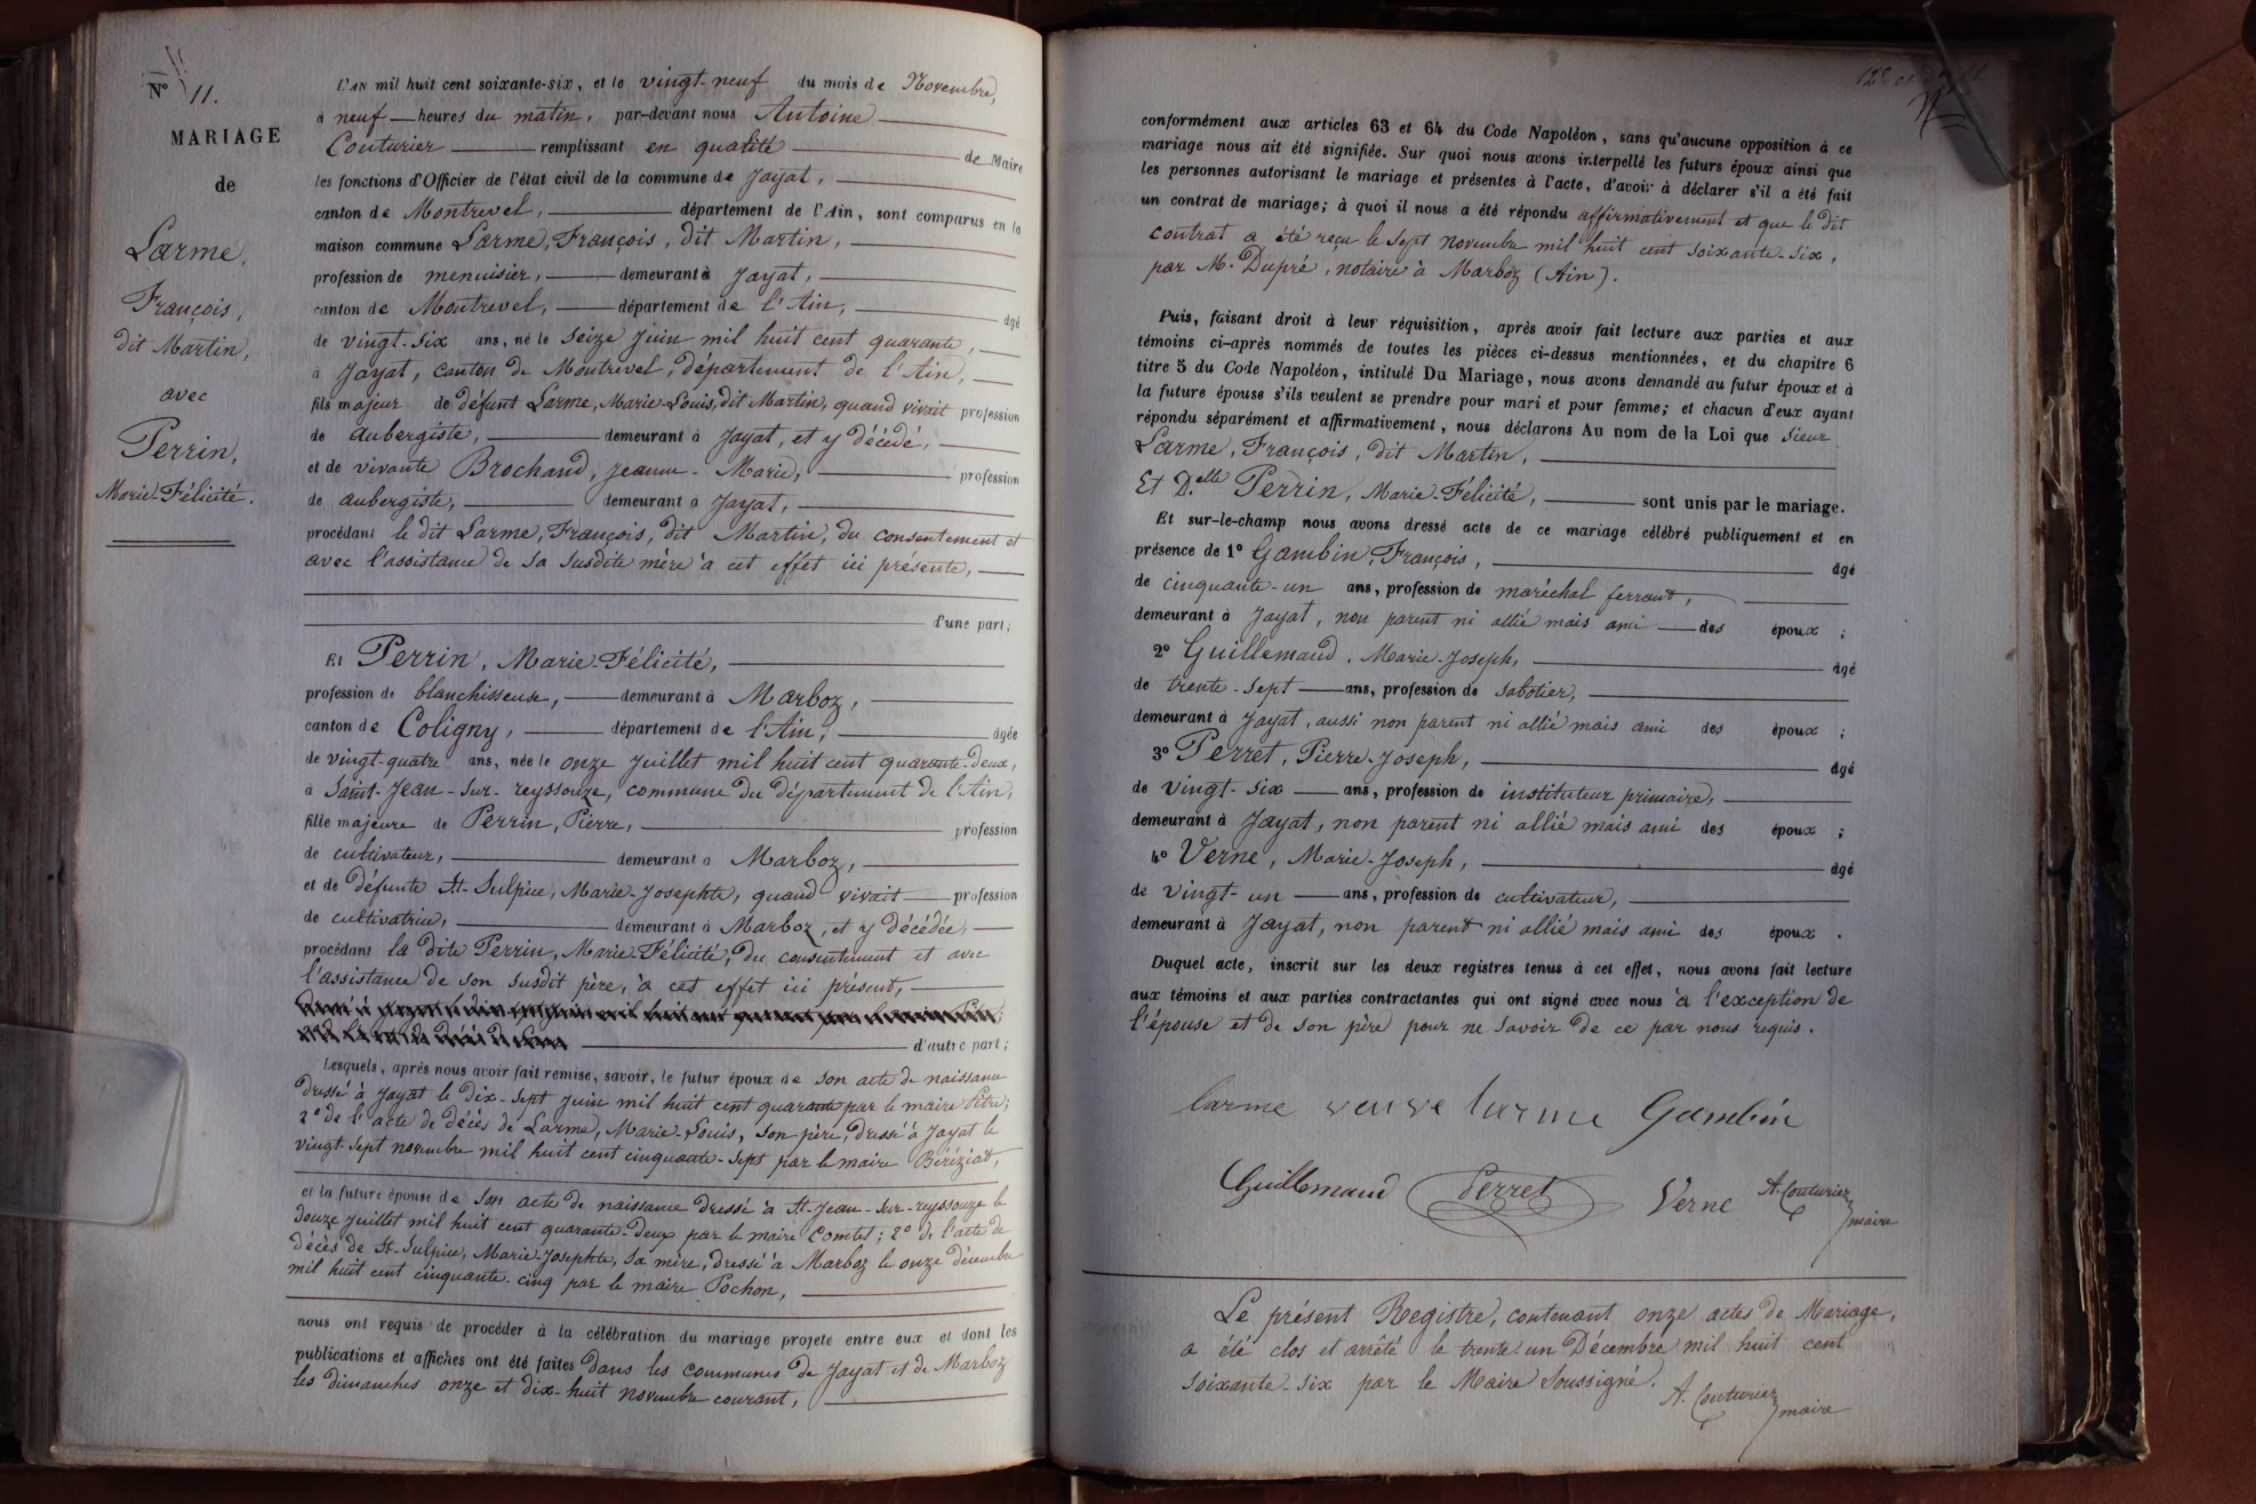 N° 11.
MARIAGE
de
Larme,
François,
dit Martin,
avec
Perrin,
Marie-Félicité.
L'AN mil huit cent soixante-six, et le vingt-neuf du mois de Novembre,
à neuf heures du matin, par-devant nous Antoine
Couturier remplissant en qualité de Maire
les fonctions d'Officier de l'état civil de la commune de Jayat,
canton de Montrevel, département de l'Ain, sont comparus en la
maison commune Larme, François, dit Martin,
profession de menuisier, demeurant à Jayat,
canton de Montrevel, département de l'Ain, âgé
de vingt-six ans, né le seize juin mil huit cent quarante,
à Jayat, canton de Montrevel, département de l'Ain,
fils majeur de défunt Larme, Marie-Louis, dit Martin, quand vivait profession
de aubergiste, demeurant à Jayat, et y décédé,
et de vivante Brochand, Jeanne-Marie, profession
de aubergiste, demeurant à Jayat,
procédant le dit Larme, François, dit Martin, du consentement et
avec l'assistance de sa susdite mère à cet effet ici présente,
d'une part;
Et Perrin, Marie-Félicité,
profession de blanchisseuse, demeurant à Marboz,
canton de Coligny, département de l'Ain, âgée
de vingt-quatre ans, née le onze juillet mil huit cent quarante-deux,
à Saint-Jean-sur-reyssouze, commune du département de l'Ain,
fille majeure de Perrin, Pierre, profession
de cultivateur, demeurant à Marboz,
et de défunte St-Sulpice, Marie-Josephte, quand vivait profession
de cultivatrice, demeurant à Marboz, et y décédée,
procédant la dite Perrin, Marie-Félicité, du consentement et avec
l'assistance de son susdit père, à cet effet ici présent,
d'autre part;
Lesquels, après nous avoir fait remise, savoir, le futur époux de son acte de naissance
dressé à Jayat le dix-sept juin mil huit cent quarante par le maire Pitre;
2° de l'acte de décès de Larme, Marie-Louis, son père, dressé à Jayat le
vingt-sept novembre mil huit cent cinquante-sept par le maire Béréziat,
et la future épouse de son acte de naissance dressé à St-Jean-sur-reyssouze le
douze juillet mil huit cent quarante-deux par le maire Combet; 2° de l'acte de
décès de St-Sulpice, Marie-Josephte, sa mère, dressé à Marboz le onze décembre
mil huit cent cinquante-cinq par le maire Pochon,
nous ont requis de procéder à la célébration du mariage projeté entre eux et dont les
publications et affiches ont été faites dans les communes de Jayat et de Marboz
les dimanches onze et dix-huit novembre courant,
conformément aux articles 63 et 64 du Code Napoléon, sans qu'aucune opposition à ce
mariage nous ait été signifiée. Sur quoi nous avons interpellé les futurs époux ainsi que
les personnes autorisant le mariage et présentes à l'acte, d'avoir à déclarer s'il a été fait
un contrat de mariage; à quoi il nous a été répondu affirmativement et que le dit
contrat a été reçu le sept novembre mil huit cent soixante-six,
par M. Dupré, notaire à Marboz (Ain).
Puis, faisant droit à leur réquisition, après avoir fait lecture aux parties et aux
témoins ci-après nommés de toutes les pièces ci-dessus mentionnées, et du chapitre 6
titre 5 du Code Napoléon, intitulé Du Mariage, nous avons demandé au futur époux et à
la future épouse s'ils veulent se prendre pour mari et pour femme; et chacun d'eux ayant
répondu séparément et affirmativement, nous déclarons Au nom de la Loi que sieur
Larme, François, dit Martin,
Et D.elle Perrin, Marie-Félicité, sont unis par le mariage.
Et sur-le-champ nous avons dressé acte de ce mariage célébré publiquement et en
présence de 1° Gambin, François, âgé
de cinquante-un ans, profession de maréchal ferrant,
demeurant à Jayat, non parent ni allié mais ami des époux ;
2° Guillemaud, Marie-Joseph, âgé
de trente-sept ans, profession de sabotier,
demeurant à Jayat, aussi non parent ni allié mais ami des époux ;
3° Perret, Pierre-Joseph, âgé
de vingt-six ans, profession de instituteur primaire,
demeurant à Jayat, non parent ni allié mais ami des époux ;
4° Verne, Marie-Joseph, âgé
de vingt-un ans, profession de cultivateur,
demeurant à Jayat, non parent ni allié mais ami des époux .
Duquel acte, inscrit sur les deux registres tenus à cet effet, nous avons fait lecture
aux témoins et aux parties contractantes qui ont signé avec nous à l'exception de
l'épouse et de son père pour ne savoir de ce par nous requis.
larme veuve larme Gambin
Guillemaud Perret Verne A. Couturier
maire
Le présent Registre, contenant onze actes de Mariage,
a été clos et arrêté le trente-un Décembre mil huit cent
soixante-six par le Maire soussigné.
A. Couturier
maire